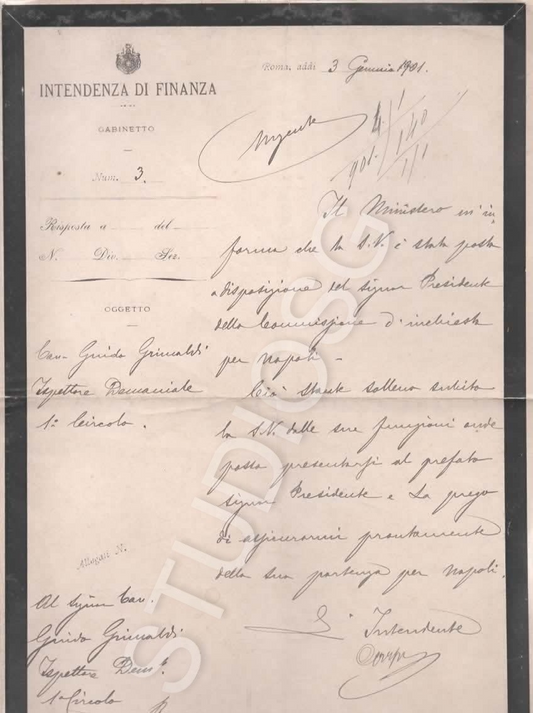 Roma, addì 3 Gennaio 1901.
INTENDENZA DI FINANZA
GABINETTO
Num. 3.
Urgente
Risposta a del
N. Div. Sez.
OGGETTO
Cav. Guido Grimaldi
Ispettore Demaniale
1º Circolo.
Il Ministero m'in
forma che la S.V. è stata posta
a disposizione del signor Presidente
della Commissione d'inchiesta
per Napoli -
Ciò stante sollevo subito
la S.V. dalle sue funzioni onde
possa presentarsi al prefato
signor Presidente e La prego
di assicurarmi prontamente
della sua partenza per Napoli.
L'Intendente
Allegati N.
Al Signor Cav.
Guido Grimaldi
Ispettore Dem.
1º Circolo
STUDIOSG